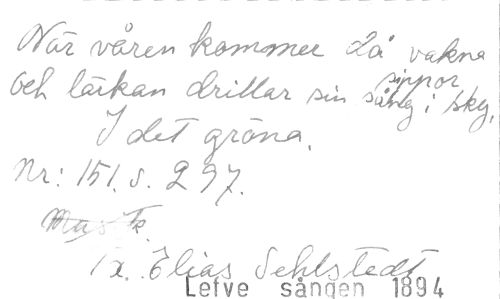 När våren kommer då vakna
sippor
och lärkan drillar sin sång i sky.
I det gröna.
Nr: 151. s. 297.
Musik.
Tx. Elias Sehlstedt
Lefve sången 1894